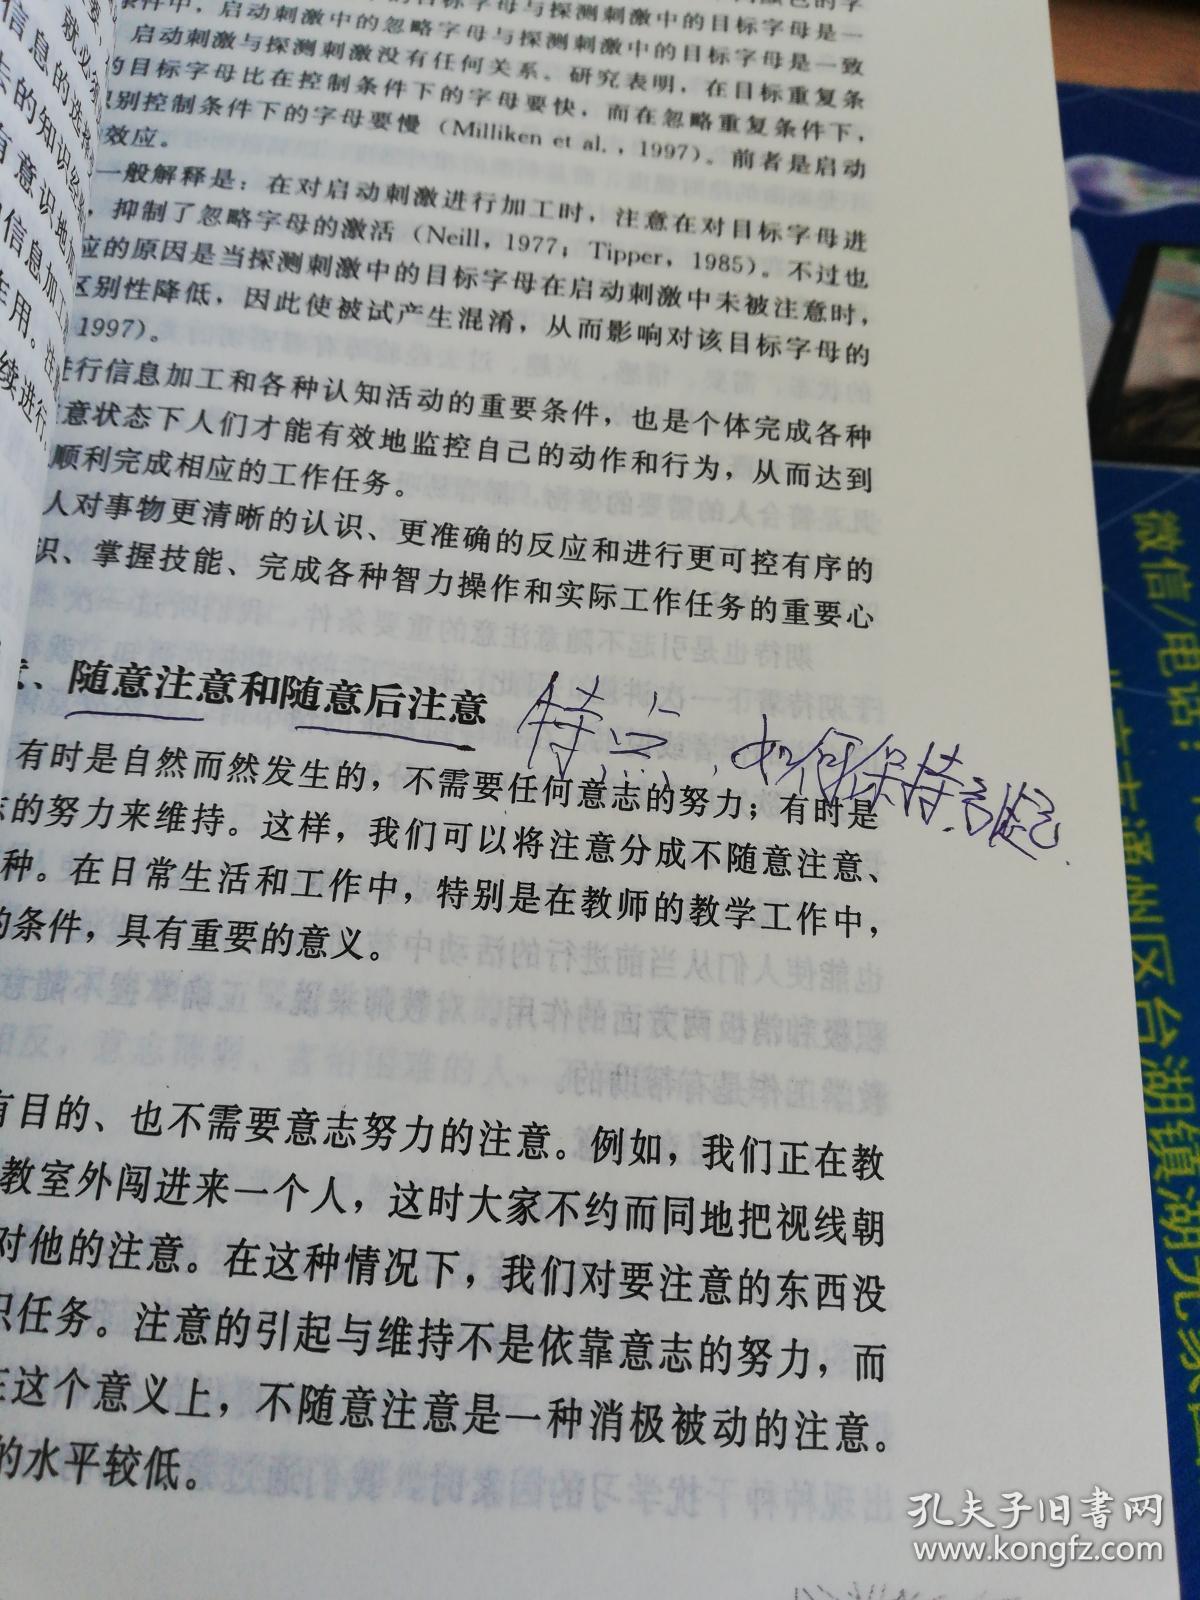 的目标字母与探测刺激中的目标字母是一
条件中，启动刺激中的忽略字母与探测刺激中的目标字母是一致
启动刺激与探测刺激没有任何关系。研究表明，在目标重复条
的目标字母比在控制条件下的字母要快，而在忽略重复条件下，
识别控制条件下的字母要慢（Milliken et al.，1997）。前者是启动
效应。
一般解释是：在对启动刺激进行加工时，注意在对目标字母进
，抑制了忽略字母的激活（Neill，1977；Tipper，1985）。不过也
应的原因是当探测刺激中的目标字母在启动刺激中未被注意时，
区别性降低，因此使被试产生混淆，从而影响对该目标字母的
1997）。
进行信息加工和各种认知活动的重要条件，也是个体完成各种
意状态下人们才能有效地监控自己的动作和行为，从而达到
顺利完成相应的工作任务。
人对事物更清晰的认识、更准确的反应和进行更可控有序的
识、掌握技能、完成各种智力操作和实际工作任务的重要心
、随意注意和随意后注意
特点，如何保持
有时是自然而然发生的，不需要任何意志的努力；有时是
志的努力来维持。这样，我们可以将注意分成不随意注意、
种。在日常生活和工作中，特别是在教师的教学工作中，
的条件，具有重要的意义。
有目的、也不需要意志努力的注意。例如，我们正在教
教室外闯进来一个人，这时大家不约而同地把视线朝
对他的注意。在这种情况下，我们对要注意的东西没
识任务。注意的引起与维持不是依靠意志的努力，而
在这个意义上，不随意注意是一种消极被动的注意。
的水平较低。
就必须
信息的选择
去的知识经
有意识地加
信息加工
作用。注
续进行
微信/电话：
通州区台湖镇湖光
孔夫子旧书网
www.kongfz.com